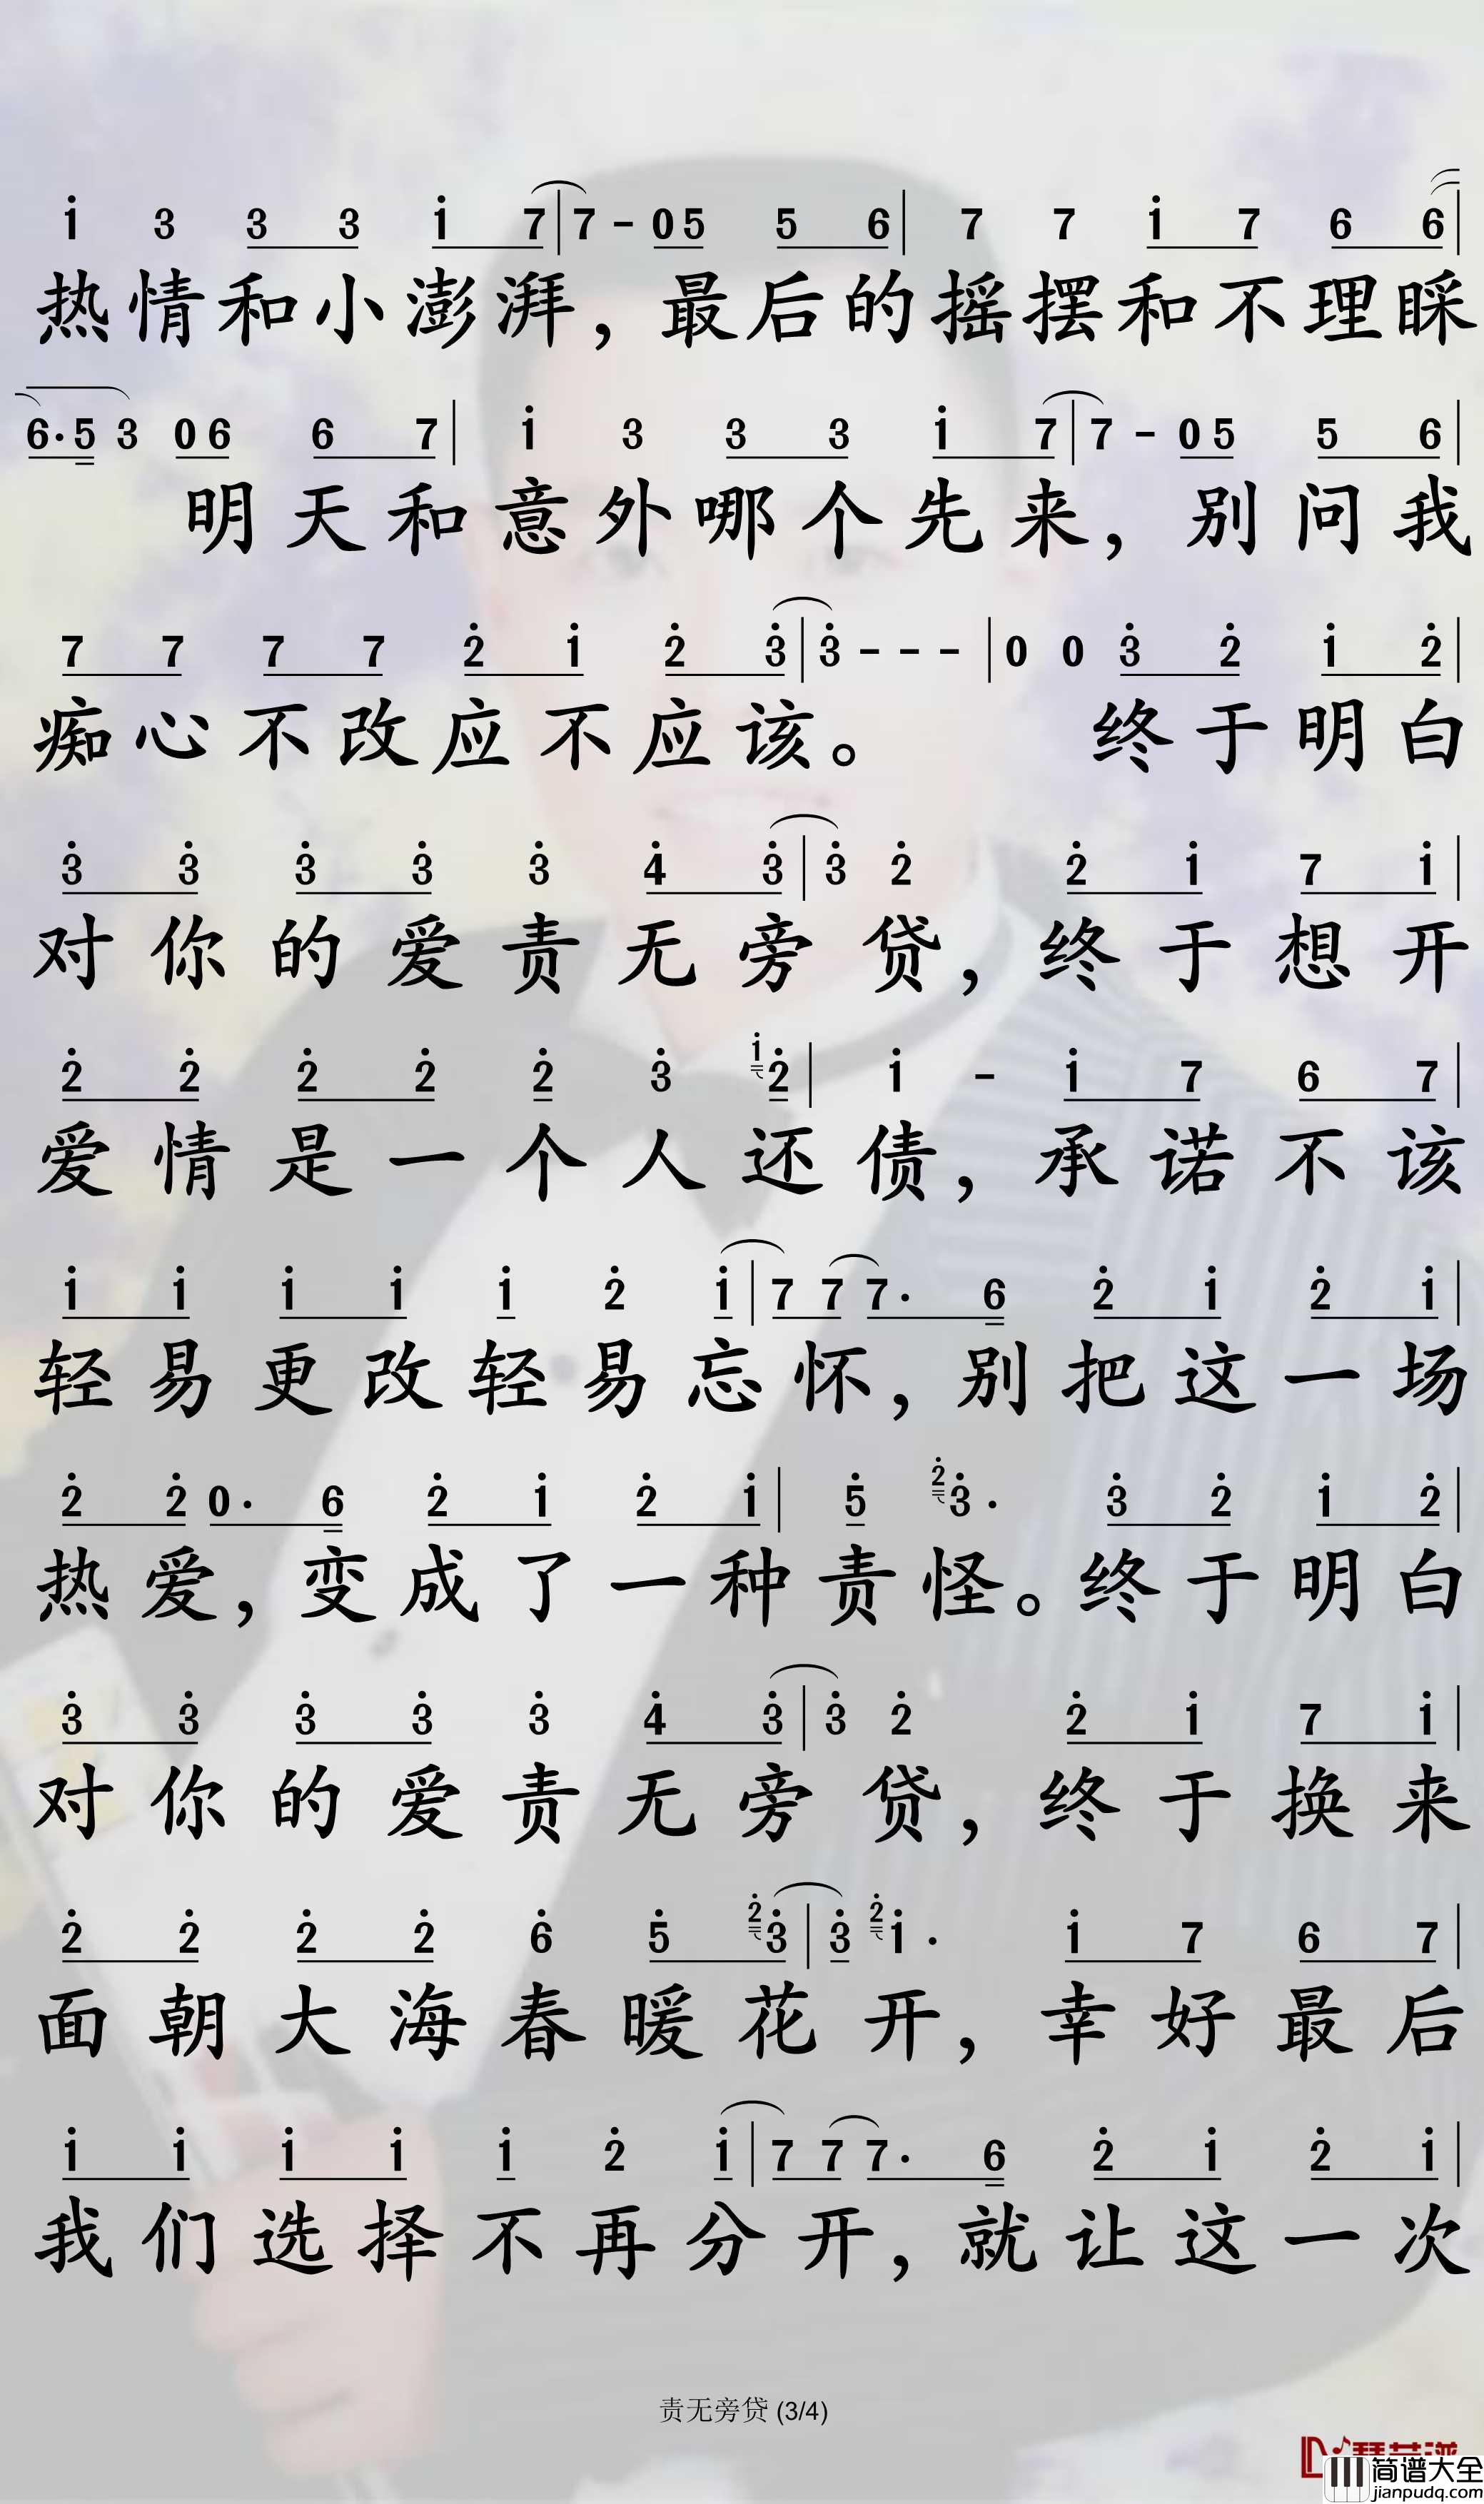 i 3 3 3 i 7 | 7 - 0 5 5 6 | 7 7 i 7 6 6 |
热情和小澎湃，最后的摇摆和不理睬
6· 5 3 0 6 6 7 | i 3 3 3 i 7 | 7 - 0 5 5 6 |
明天和意外哪个先来，别问我
7 7 7 7 2 i 2 3 | 3 - - - | 0 0 3 2 i 2 |
痴心不改应不应该。终于明白
3 3 3 3 3 4 3 | 3 2 2 i 7 i |
对你的爱责无旁贷，终于想开
2 2 2 2 2 3 i 2 | i - i 7 6 7 |
爱情是一个人还债，承诺不该
i i i i i 2 i | 7 7 7· 6 2 i 2 i |
轻易更改轻易忘怀，别把这一场
2 2 0· 6 2 i 2 i | 5 2 3· 3 2 i 2 |
热爱，变成了一种责怪。终于明白
3 3 3 3 3 4 3 | 3 2 2 i 7 i |
对你的爱责无旁贷，终于换来
2 2 2 2 6 5 2 3 | 3 2 i· i 7 6 7 |
面朝大海春暖花开，幸好最后
i i i i i 2 i | 7 7 7· 6 2 i 2 i |
我们选择不再分开，就让这一次
责无旁贷 (3/4)
简谱大全
jianpudq.com